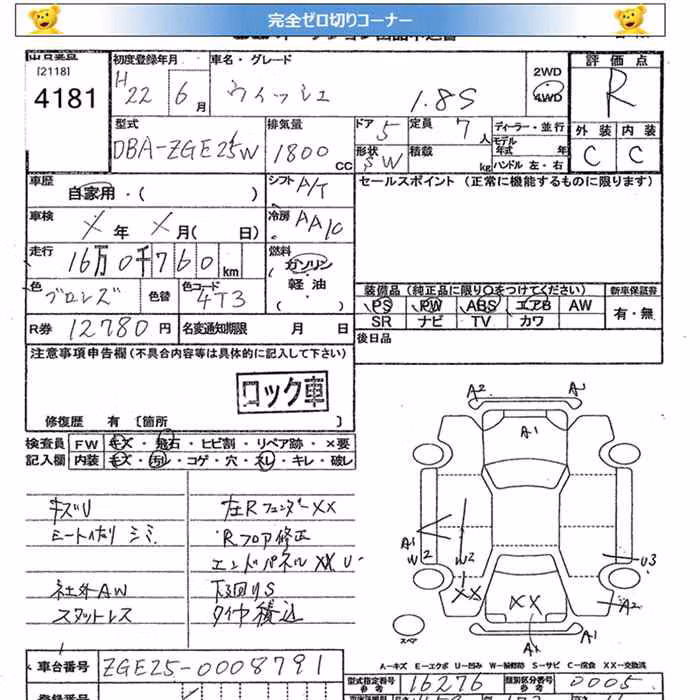 完全ゼロ切りコーナー
[2118]
4181
初度登録年月
H22年 6月
車名・グレード
ウィッシュ 1.8S
2WD
4WD
評価点
R
型式
DBA-ZGE25W
排気量
1800 CC
ドア 5
形状 SW
定員 7人
積載 kg
ディーラー・並行
モデル年式 年
ハンドル 左・右
外装 内装
C C
車歴
自家用・( )
シフト A/T
セールスポイント (正常に機能するものに限ります)
車検
X年 X月( 日)
冷房 AAC
走行
16万0千760km
燃料
ガソリン
軽油
( )
色
ブロンズ
色替
色コード
4T3
装備品 (純正品に限り○をつけてください)
新車保証書
PS PW ABS エアB AW
SR ナビ TV カワ
有・無
R券 12780円
名変通知期限 月 日
後日品
注意事項申告欄(不具合内容等は具体的に記入して下さい)
ロック車
修復歴 有 [箇所 ]
検査員 FW キズ・飛石・ヒビ割・リペア跡・×要
記入欄 内装 キズ・汚れ・コゲ・穴・スレ・キレ・破レ
キズU
シート汚れ シミ
社外AW
スタットレス
左RフェンダーXX
Rフロア修正
エンドパネルXX U
下回りS
タイヤ積込
A2 A3
A1
A1
W2
W2
XX
U3
A2
XX
A1 A1
スペア
A-キズ E-エクボ U-凹み W-補修跡 S-サビ C-腐食 XX-交換済
車台番号 ZGE25-0008791
型式指定番号
参考
16276
類別区分番号
参考
0005